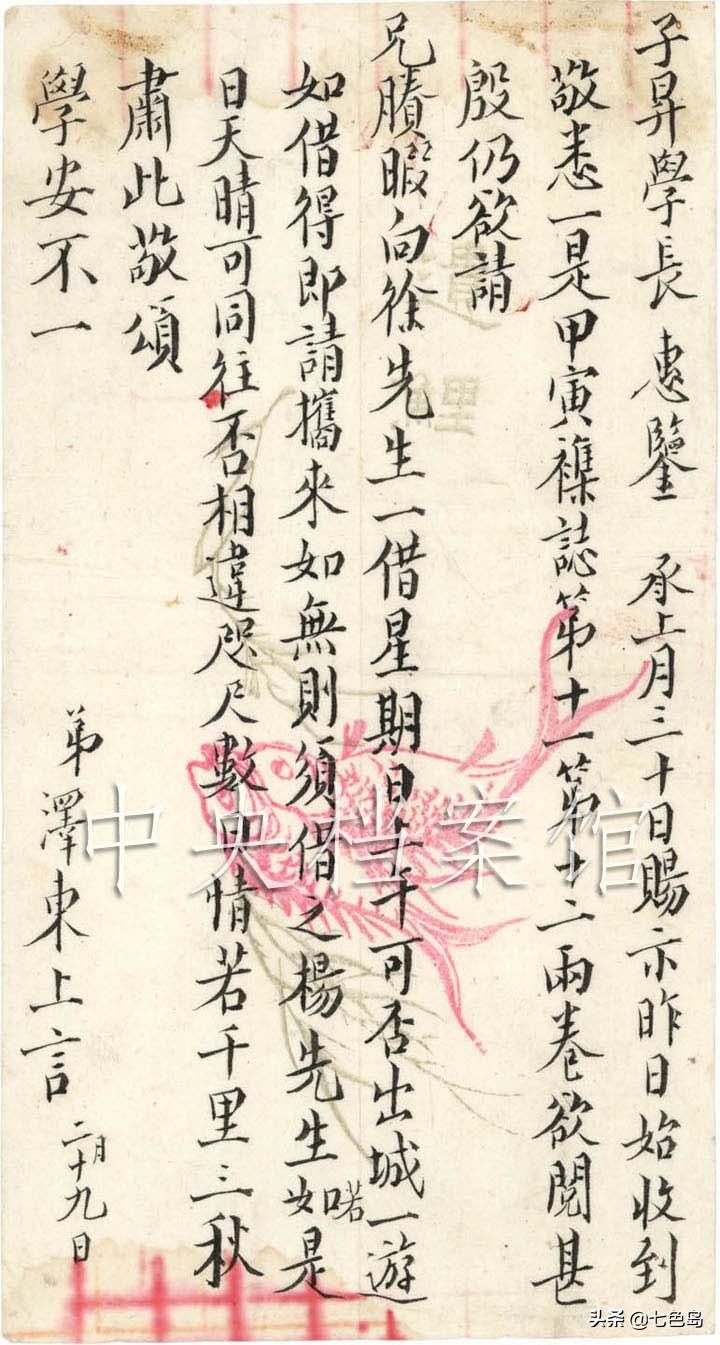 子昇學長 惠鑒 承上月三十日賜示昨日始收到
敬悉一是甲寅襍誌第十一第十二兩卷欲閱甚
殷仍欲請
兄賸暇向徐先生一借星期日上午可否出城一遊
如借得即請攜來如無則須借之楊先生喏如是
日天晴可同往否相違咫尺數日情若千里三秋
肅此敬頌
學安不一
弟澤東上言 二月十九日
中央档案馆
头条 @七色岛